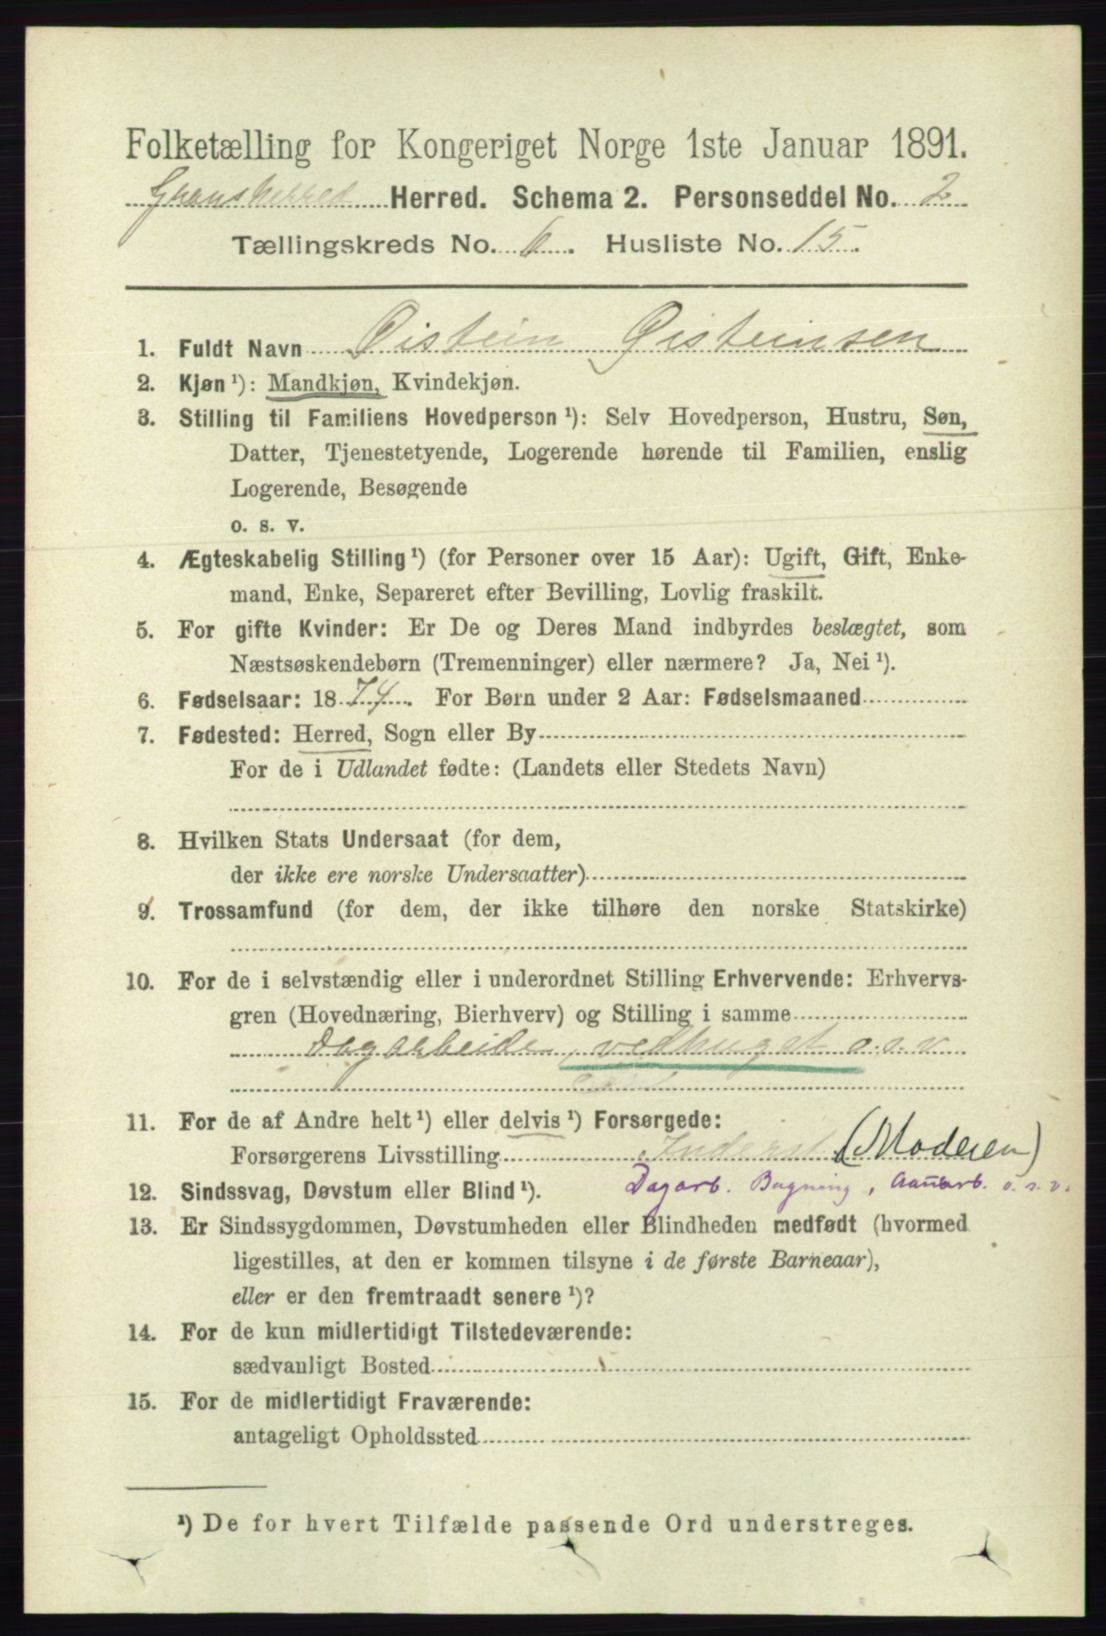 Folketælling for Kongeriget Norge 1ste Januar 1891.
Gransherred Herred. Schema 2. Personseddel No. 2
Tællingskreds No. 6. Husliste No. 15.
1. Fuldt Navn Øistein Øisteinsen
2. Kjøn¹): Mandkjøn, Kvindekjøn.
3. Stilling til Familiens Hovedperson¹): Selv Hovedperson, Hustru, Søn,
Datter, Tjenestetyende, Logerende hørende til Familien, enslig
Logerende, Besøgende
o. s. v.
4. Ægteskabelig Stilling¹) (for Personer over 15 Aar): Ugift, Gift, Enke-
mand, Enke, Separeret efter Bevilling, Lovlig fraskilt.
5. For gifte Kvinder: Er De og Deres Mand indbyrdes beslægtet, som
Næstsøskendebørn (Tremenninger) eller nærmere? Ja, Nei¹).
6. Fødselsaar: 1874. For Børn under 2 Aar: Fødselsmaaned
7. Fødested: Herred, Sogn eller By
For de i Udlandet fødte: (Landets eller Stedets Navn)
8. Hvilken Stats Undersaat (for dem,
der ikke ere norske Undersaatter)
9. Trossamfund (for dem, der ikke tilhøre den norske Statskirke)
10. For de i selvstændig eller i underordnet Stilling Erhvervende: Erhvervs-
gren (Hovednæring, Bierhverv) og Stilling i samme
Dagarbeide, vedhuget o.s.v
11. For de af Andre helt¹) eller delvis¹) Forsørgede:
Forsørgerens Livsstilling Inderst (Moderen)
12. Sindssvag, Døvstum eller Blind¹). Dagarb. Bagning, Aannarb. o.s.v.
13. Er Sindssygdommen, Døvstumheden eller Blindheden medfødt (hvormed
ligestilles, at den er kommen tilsyne i de første Barneaar),
eller er den fremtraadt senere¹)?
14. For de kun midlertidigt Tilstedeværende:
sædvanligt Bosted
15. For de midlertidigt Fraværende:
antageligt Opholdssted
¹) De for hvert Tilfælde passende Ord understreges.